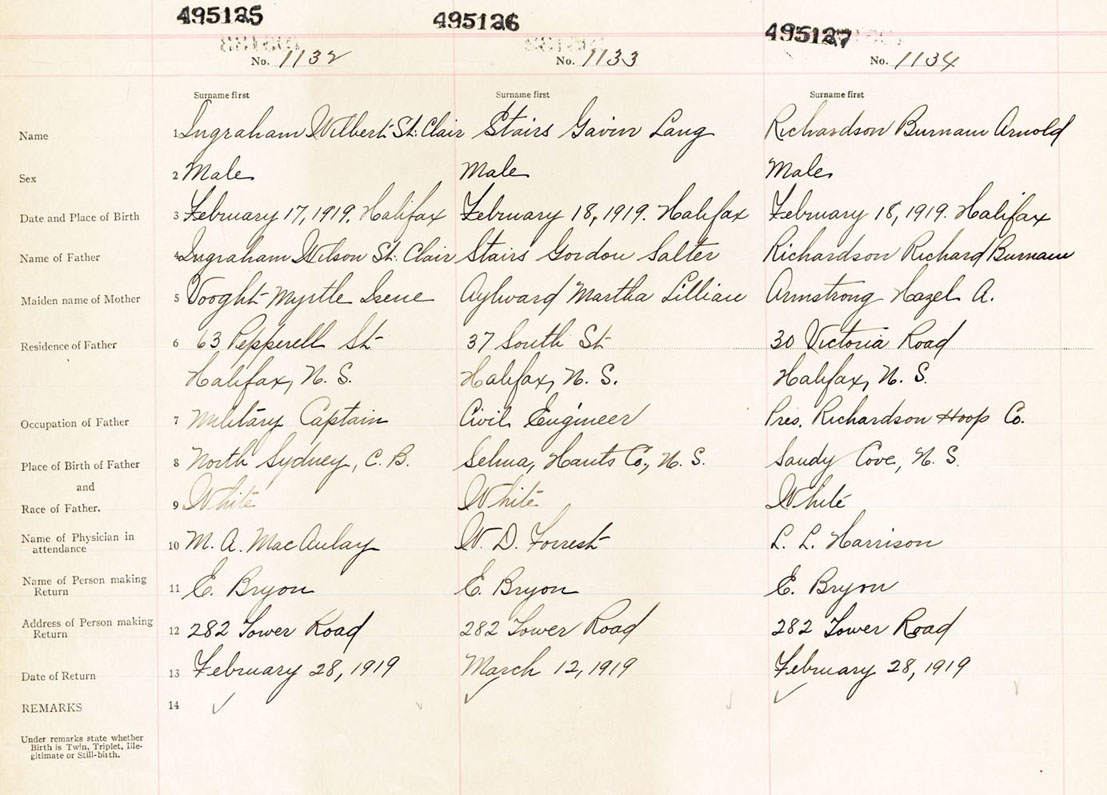 495125 495126 495127
No. 1132 No. 1133 No. 1134
Surname first Surname first Surname first
Name 1 Ingraham Wilbert St. Clair Stairs Gavin Lang Richardson Burnam Arnold
Sex 2 Male Male Male
Date and Place of Birth 3 February 17, 1919. Halifax February 18, 1919. Halifax February 18, 1919. Halifax
Name of Father 4 Ingraham Wilson St. Clair Stairs Gordon Salter Richardson Richard Burnam
Maiden name of Mother 5 Vooght Myrtle Irene Aylward Martha Lillian Armstrong Hazel A.
Residence of Father 6 63 Pepperell St 37 South St 30 Victoria Road
Halifax, N. S. Halifax, N. S. Halifax, N. S.
Occupation of Father 7 Military Captain Civil Engineer Pres. Richardson Hoop Co.
Place of Birth of Father 8 North Sydney, C. B. Selma, Hants Co., N. S. Sandy Cove, N. S.
and
Race of Father. 9 White White White
Name of Physician in
attendance 10 M. A. MacAulay W. D. Forrest L. L. Harrison
Name of Person making
Return 11 E. Bryon E. Bryon E. Bryon
Address of Person making
Return 12 282 Tower Road 282 Tower Road 282 Tower Road
Date of Return 13 February 28, 1919 March 12, 1919 February 28, 1919
REMARKS 14
Under remarks state whether
Birth is Twin, Triplet, Ille-
gitimate or Still-birth.